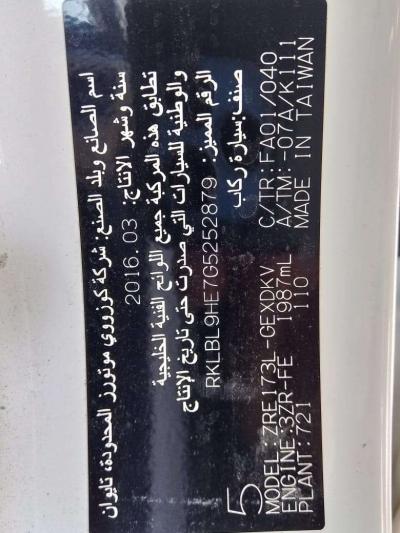 اسم الصانع وبلد الصنع: شركة كوزووي موتورز المحدودة، تايوان
سنة وشهر الإنتاج: 2016.03
تطابق هذه المركبة جميع اللوائح الفنية الخليجية
والوطنية للسيارات التي صدرت حتى تاريخ الإنتاج
الرقم المميز: RKLBL9HE7G5252879
صنف: سيارة ركاب
5
MODEL:ZRE173L-GEXDKV C/TR:FA01/040
ENGINE:3ZR-FE 1987mL A/TM:-07A/K111
PLANT:721 110 MADE IN TAIWAN